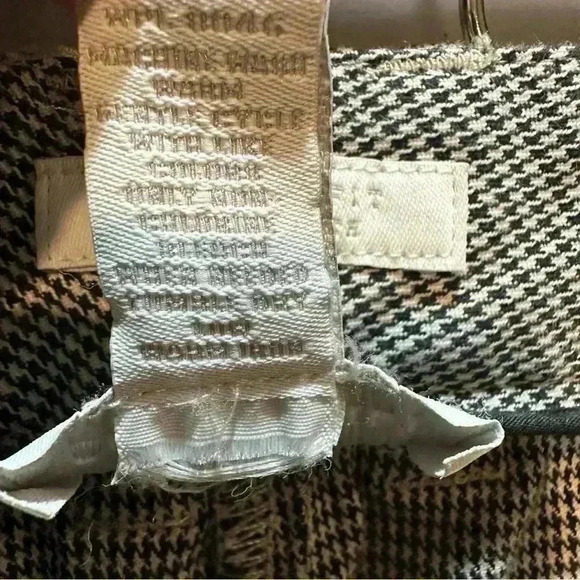 MACHINE WASH
WARM
GENTLE CYCLE
WITH LIKE
COLORS
ONLY NON-
CHLORINE
BLEACH
WHEN NEEDED
TUMBLE DRY
LOW
WARM IRON